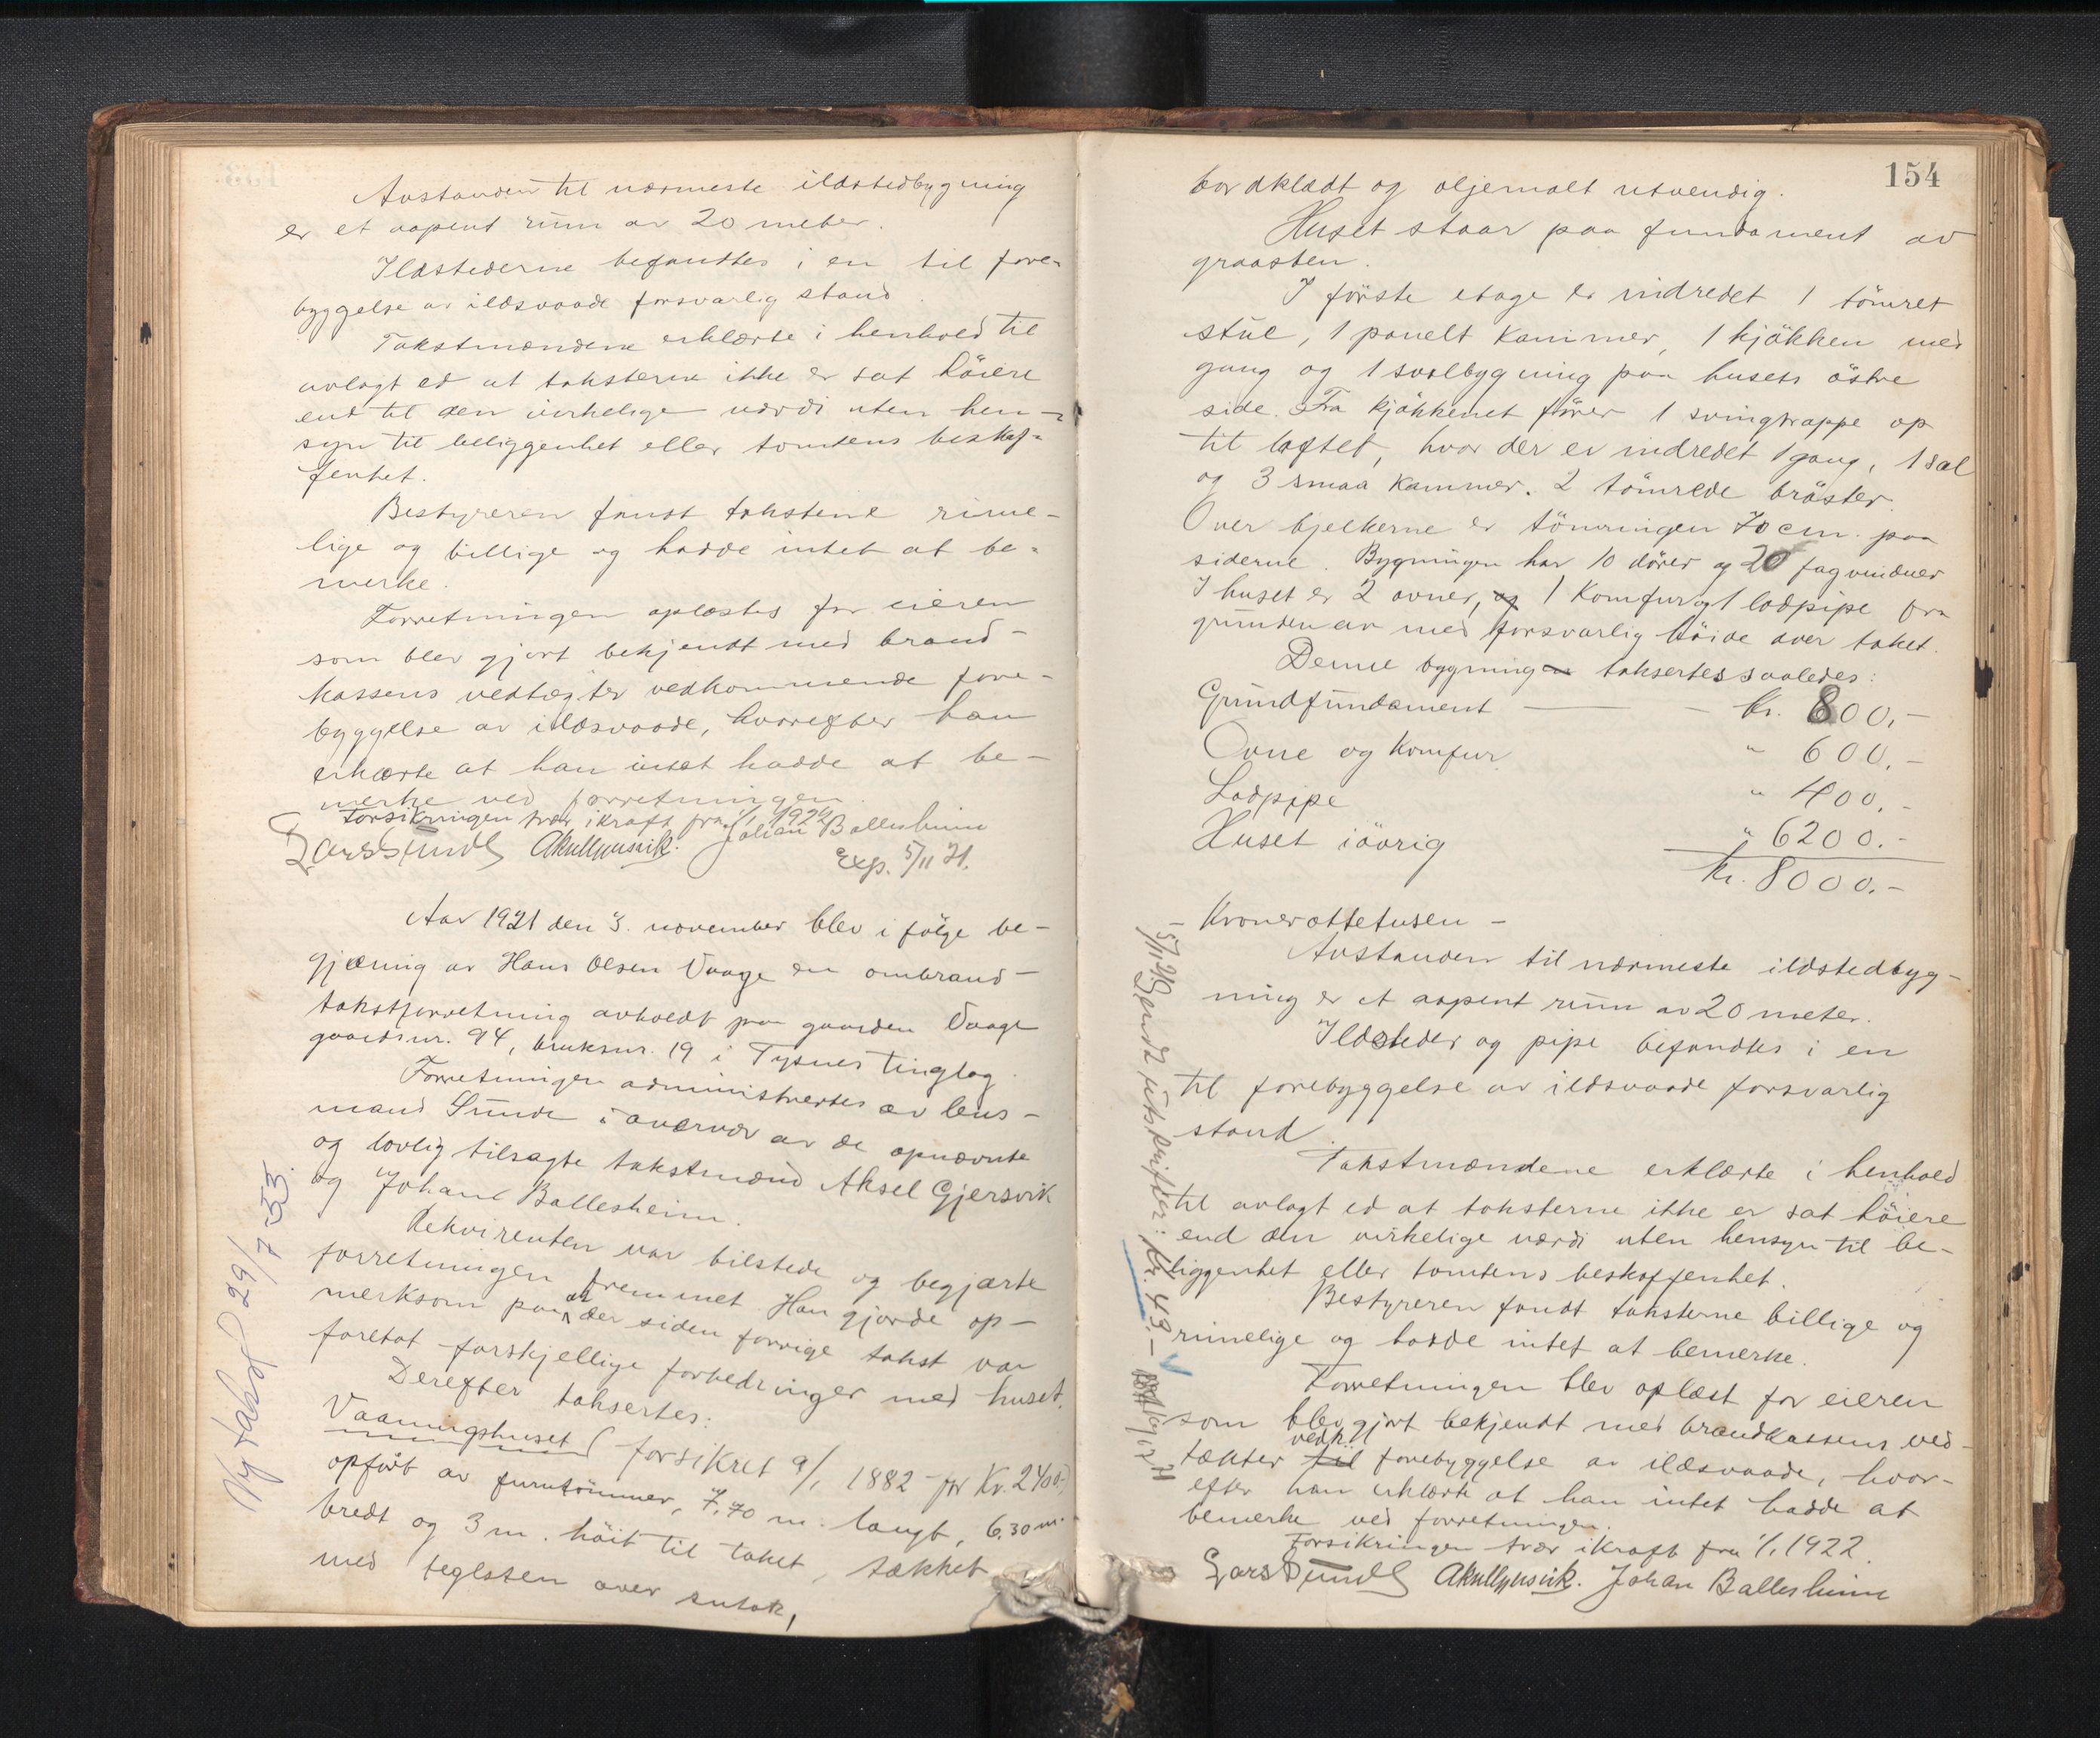 Avstanden til nærmeste ildstedbygning
er et aapent rum av 20 meter.
Ildstederne befandtes i en til fore-
byggelse av ildsvaade forsvarlig stand
Takstmændene erklærte i henhold til
avlagt ed at taksterne ikke er sat höiere
end til den virkelige værdi uten hen-
syn til beliggenhet eller tomtens beskaf-
fenhet.
Bestyreren fandt takstene rime-
lige og billige og hadde intet at be-
merke.
Forretningen oplæstes for eieren
som blev gjort bekjendt med brand-
kassens vedtægter vedkommende fore-
byggelse av ildsvaade, hvorefter han
erklærte at han intet hadde at be-
merke ved forretningen
Forsikringen trær ikraft fra 1/1 1922
Lars Sunde AkselGjersvik. Johan Ballesheim
Exp. 5/11 21.
Aar 1921 den 3. november blev i fölge be-
gjæring av Hans Olsen Vaage en ombrand-
takstforretning avholdt paa gaarden Vaage
gaardsnr. 94, bruksnr. 19 i Tysnes tinglag.
Forretningen administrertes av lens-
mand Sunde i overvær av de opnævnte
og lovlig tilsagte takstmænd Aksel Gjersvik
og Johan Ballesheim.
Rekvirenten var tilstede og begjærte
forretningen fremmet. Han gjorde op-
merksom paa at der siden forrige takst var
foretat forskjellige forbedringer med huset.
Derefter taksertes:
Vaaningshuset (forsikret 9/1 1882 for Kr. 2400.-)
opfört av furutömmer, 7,70 m. langt, 6.30 m.
bredt og 3 m. höit til taket, tækket
med teglsten over sutak,
Ny takst 29/7-33.
154
bordklædt og oljemalt utvendig.
Huset staar paa fundament av
graasten.
I förste etage er indredet 1 tömret
stue, 1 panelt kammer, 1 kjökken med
gang og 1 svalbygning paa husets östre
side. Fra kjökkenet förer 1 svingtrappe op
til loftet, hvor der er indredet 1 gang, 1 sal
og 3 smaa kammer. 2 tömrede bröster.
Over bjelkerne er tömringen 70 cm. paa
siderne. Bygningen har 10 dörer og 20 fag vinduer
I huset er 2 ovner, og 1 Komfur og 1 lodpipe fra
grunden av med forsvarlig höide over taket.
Denne bygningen taksertes saaledes:
Grundfundament — kr. 800.-
Ovne og Komfur " 600.-
Lodpipe " 400.-
Huset iövrig " 6200.-
kr. 8000.-
- Kronerottetusen -
Avstanden til nærmeste ildstedbyg-
ning er et aapent rum av 20 meter.
Ildsteder og pipe befandtes i en
til forebyggelse av ildsvaade forsvarlig
stand.
Takstmændene erklærte i henhold
til avlagt ed at taksterne ikke er sat höiere
end den virkelige værdi uten hensyn til be-
liggenhet eller tomtens beskaffenhet.
Bestyreren fandt taksterne billige og
rimelige og hadde intet at bemerke.
Forretningen blev oplæst for eieren
som blev gjort bekjendt med brandkassens ved-
tækter til vedk. forebyggelse av ildsvaade, hvor-
efter han erklærte at han intet hadde at
bemerke ved forretningen.
Forsikringen trær ikraft fra 1/1 1922.
Lars Sunde AkselGjersvik. Johan Ballesheim
5/11 21 Sendt utskrifter: kr. 43.-